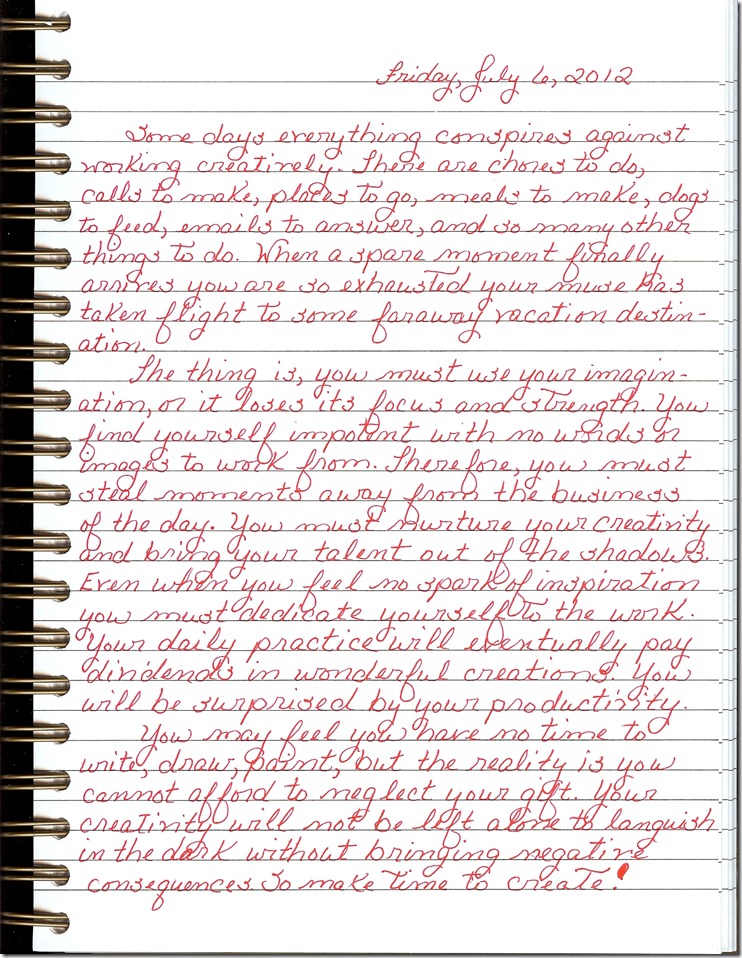 Friday, July 6, 2012
Some days everything conspires against
working creatively. There are chores to do,
calls to make, places to go, meals to make, dogs
to feed, emails to answer, and so many other
things to do. When a spare moment finally
arrives you are so exhausted your muse has
taken flight to some faraway vacation destin-
ation.
The thing is, you must use your imagin-
ation, or it loses its focus and strength. You
find yourself impotent with no words or
images to work from. Therefore, you must
steal moments away from the business
of the day. You must nurture your creativity
and bring your talent out of the shadows.
Even when you feel no spark of inspiration
you must dedicate yourself to the work.
Your daily practice will eventually pay
dividends in wonderful creations. You
will be surprised by your productivity.
You may feel you have no time to
write, draw, paint, but the reality is you
cannot afford to neglect your gift. Your
creativity will not be left alone to languish
in the dark without bringing negative
consequences. So make time to create!